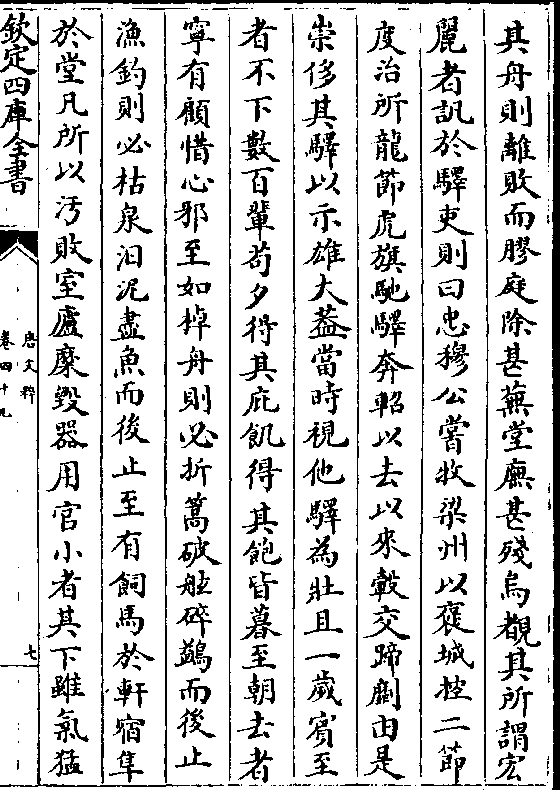 其舟則離敗而膠庭除甚蕪堂廡甚殘烏覩其所謂宏
麗者訊於驛吏則曰忠穆公嘗牧梁州以襃城控二節
度治所龍節虎旗馳驛奔軺以去以來轂交蹄劘由是
崇侈其驛以示雄大葢當時視他驛為壯且一歲賓至
者不下數百輩苟夕得其庇飢得其飽皆暮至朝去者
寧有顧惜心邪至如棹舟則必折篙破舷碎鷁而後止
漁釣則必枯泉汩泥盡魚而後止至有飼馬於軒宿隼
於堂凡所以汚敗室廬糜毀器用官小者其下雖氣猛
欽定四庫全書
唐文粹
卷四十九
七